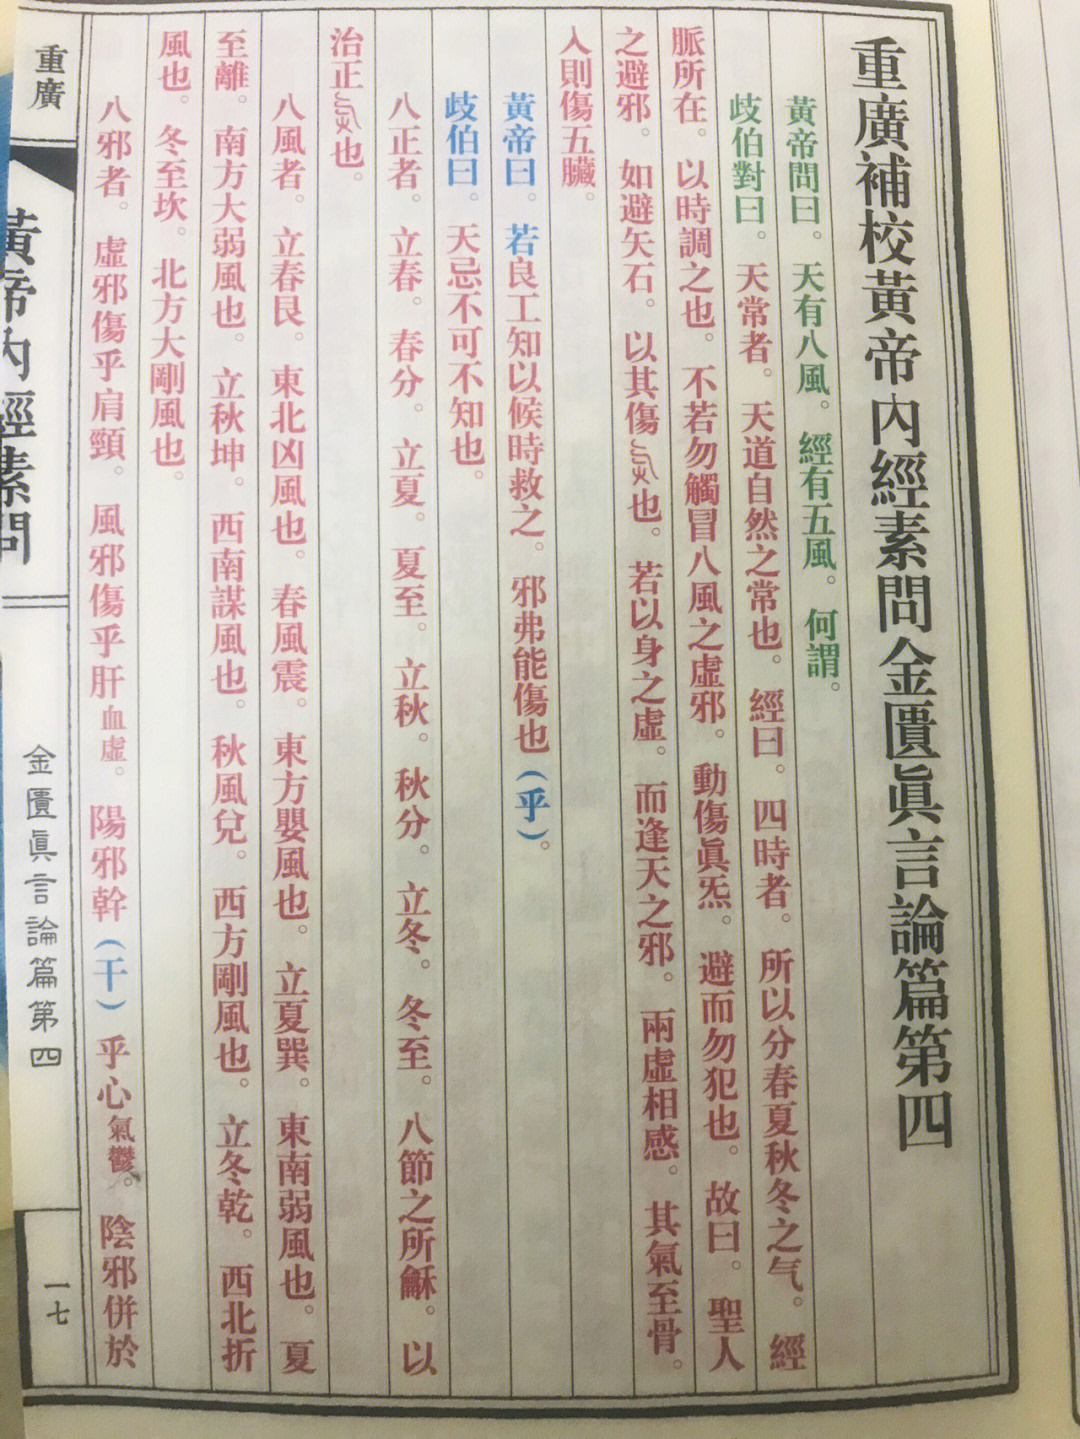 重廣補校黃帝內經素問金匱眞言論篇第四
黃帝問曰。天有八風。經有五風。何謂。
歧伯對曰。天常者。天道自然之常也。經曰。四時者。所以分春夏秋冬之气。經
脈所在。以時調之也。不若勿觸冒八風之虛邪。動傷眞炁。避而勿犯也。故曰。聖人
之避邪。如避矢石。以其傷也。若以身之虛。而逢天之邪。兩虛相感。其氣至骨。
入則傷五臟。
黃帝曰。若良工知以候時救之。邪弗能傷也（乎）。
歧伯曰。天忌不可不知也。
八正者。立春。春分。立夏。夏至。立秋。秋分。立冬。冬至。八節之所龢。以
治正也。
八風者。立春艮。東北凶風也。春風震。東方嬰風也。立夏巽。東南弱風也。夏
至離。南方大弱風也。立秋坤。西南謀風也。秋風兌。西方剛風也。立冬乾。西北折
風也。冬至坎。北方大剛風也。
八邪者。虛邪傷乎肩頸。風邪傷乎肝血虛。陽邪幹（干）乎心氣鬱。陰邪併於
重廣
黃帝內經素問
金匱眞言論篇第四
一七